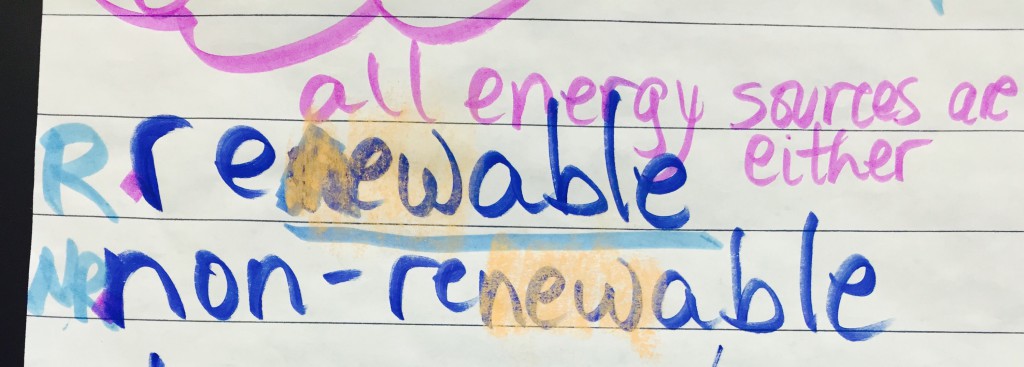 all energy sources are
either
R renewable
NR non-renewable